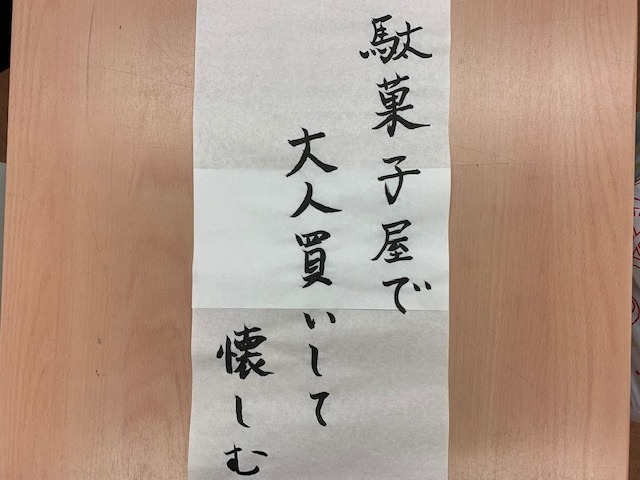 駄菓子屋で
大人買いして
懐しむ